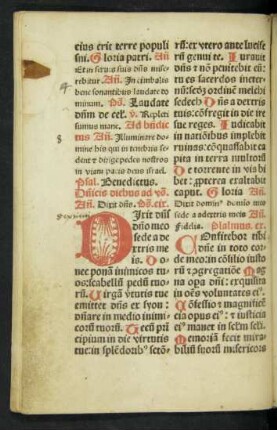 eius erit terre populi
sui. Gloria patri. Añ.
Et in seruis suis dñs mise
rebitur. Añ. In cimbalis
bene sonantibus laudate do
minum. Ps̃. Laudate
dñm de cel. v̄. Repleti
sumus mane. Ad bñdictus
Añ. Illuminare do
mine his qui in tenebris se
dent et dirige pedes nostros
in viam pacis deus israel.
Psal. Benedictus.
Dñicis diebus ad vp̃.
Añ. Dixit dñs. Ps̃. cix.
Dixit dñs
dño meo
sede a de
xtris me
is. Do
nec ponã inimicos tu
os: scabellũ pedũ tuo
rũ. Virgã v̄tutis tue
emittet dñs ex syon:
dñare in medio inimi
corũ tuorũ. Tecũ pri
cipium in die virtutis
tue: in splẽdoribꝰ sctõ
rũ: ex vtero ante lucife
rũ genui te. Iurauit
dñs et nõ penitebit eũ:
tu es sacerdos in eter
nũ: scdȝ ordinẽ melchi
sedech. Dñs a dextris
tuis: cõfregit in die ire
sue reges. Iudicabit
in natiõibus implebit
ruinas: cõquassabit ca
pita in terra multorũ
De torrente in via bi
bet: ꝓpterea exaltabit
caput. Gloria. Añ.
Dixit dominꝰ domino meo
sede a dextris meis. Añ.
Fidelia. Psalmus. cx.
Confitebor tibi
dñe in toto cor
de meo: in cõsilio iusto
rũ et ↄgregatiõe. Mag
na opa dñi: exquisita
in oẽs voluntates eiꝰ.
Cõfessio et magnificẽ
cia opus eiꝰ: et iusticia
eiꝰ manet in sclm̃ scli.
Memoriã fecit mira
biliũ suorũ misericors